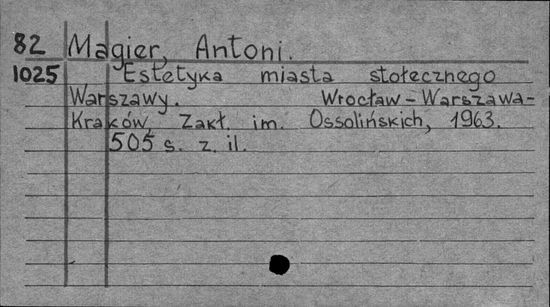 82 Magier, Antoni.
1025 Estetyka miasta stołecznego
Warszawy. Wrocław-Warszawa-
Kraków, Zakł. im. Ossolińskich, 1963.
505 s. z. il.